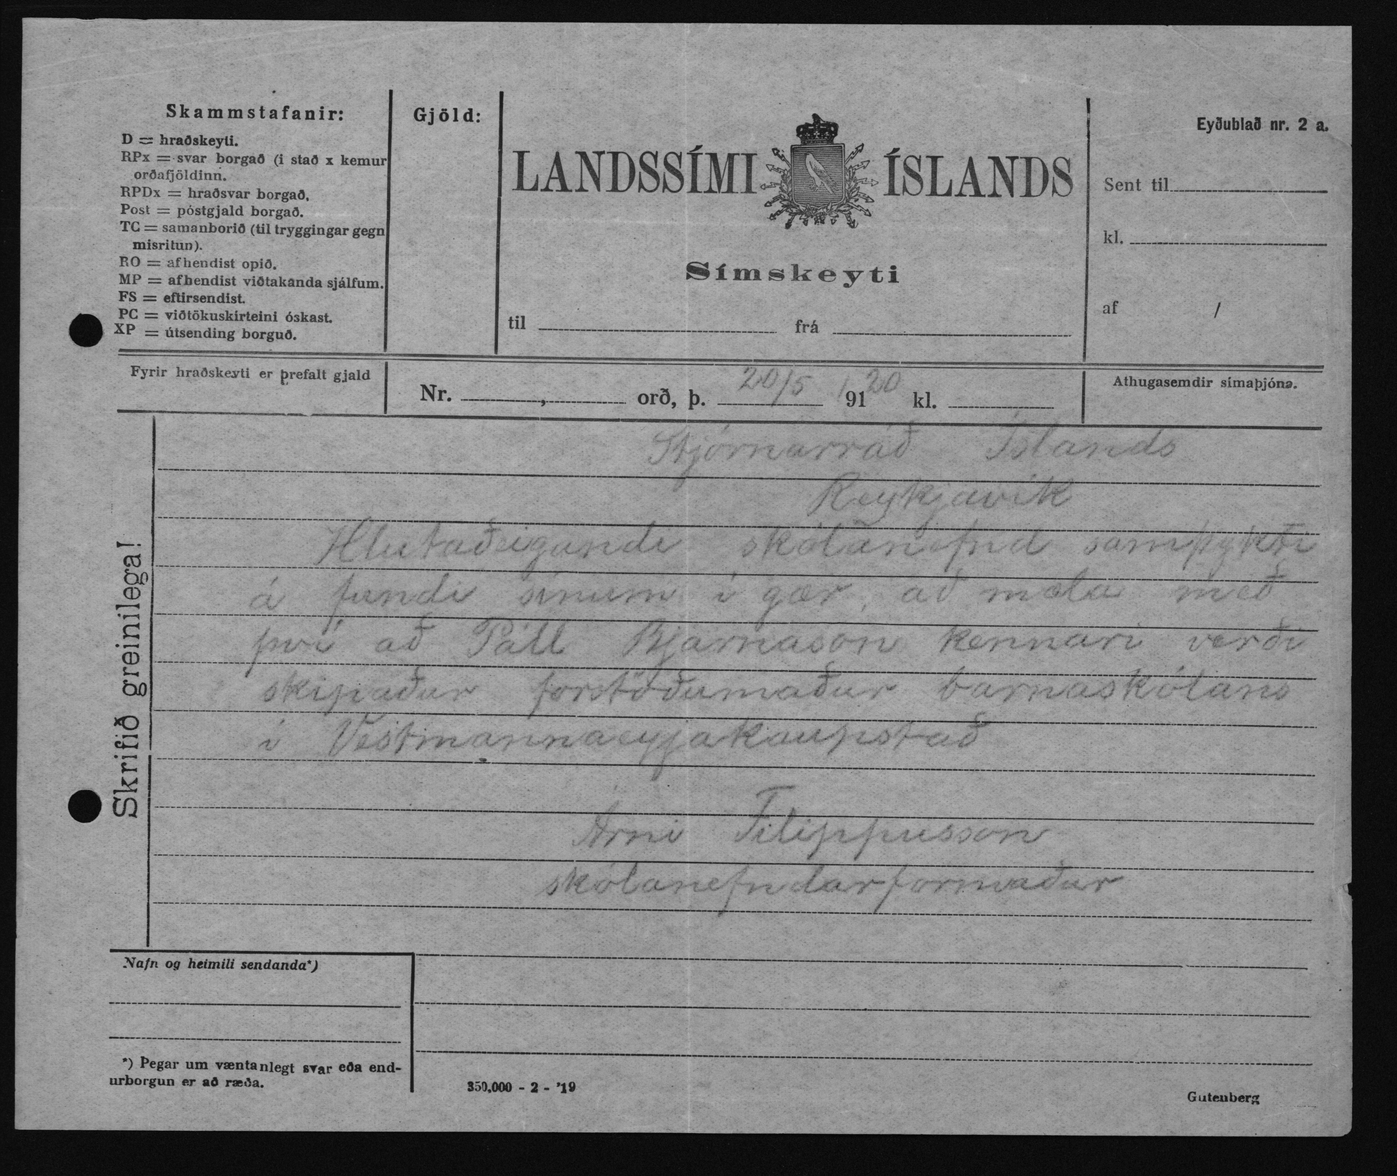 Skammstafanir:
D = hraðskeyti.
RPx = svar borgað (i stað x kemur
orðafjöldinn.
RPDx = hraðsvar borgað.
Post = póstgjald borgað.
TC = samanborið (til tryggingar gegn
misritun).
RO = afhendist opið.
MP = afhendist viðtakanda sjálfum.
FS = eftirsendist.
PC = viðtökuskirteini óskast.
XP = útsending borguð.
Gjöld:
LANDSSÍMI ÍSLANDS
Símskeyti
til frá
Eyðublað nr. 2 a.
Sent til
kl.
af /
Fyrir hraðskeyti er þrefalt gjald
Nr. , orð, þ. 20/5 1920 kl.
Athugasemdir símaþjóna.
Skrifið greinilega!
Stjórnarráð Íslands
Reykjavík
Hlutaðeigandi skólanefnd samþykti
á fundi sínum í gær, að mæla með
því að Páll Bjarnason kennari verði
skipaður forstöðumaður barnaskólans
í Vestmannaeyjakaupstað
Árni Filippusson
skólanefndarformaður
Nafn og heimili sendanda*)
*) Þegar um væntanlegt svar eða end-
urborgun er að ræða.
350.000 - 2 - '19
Gutenberg